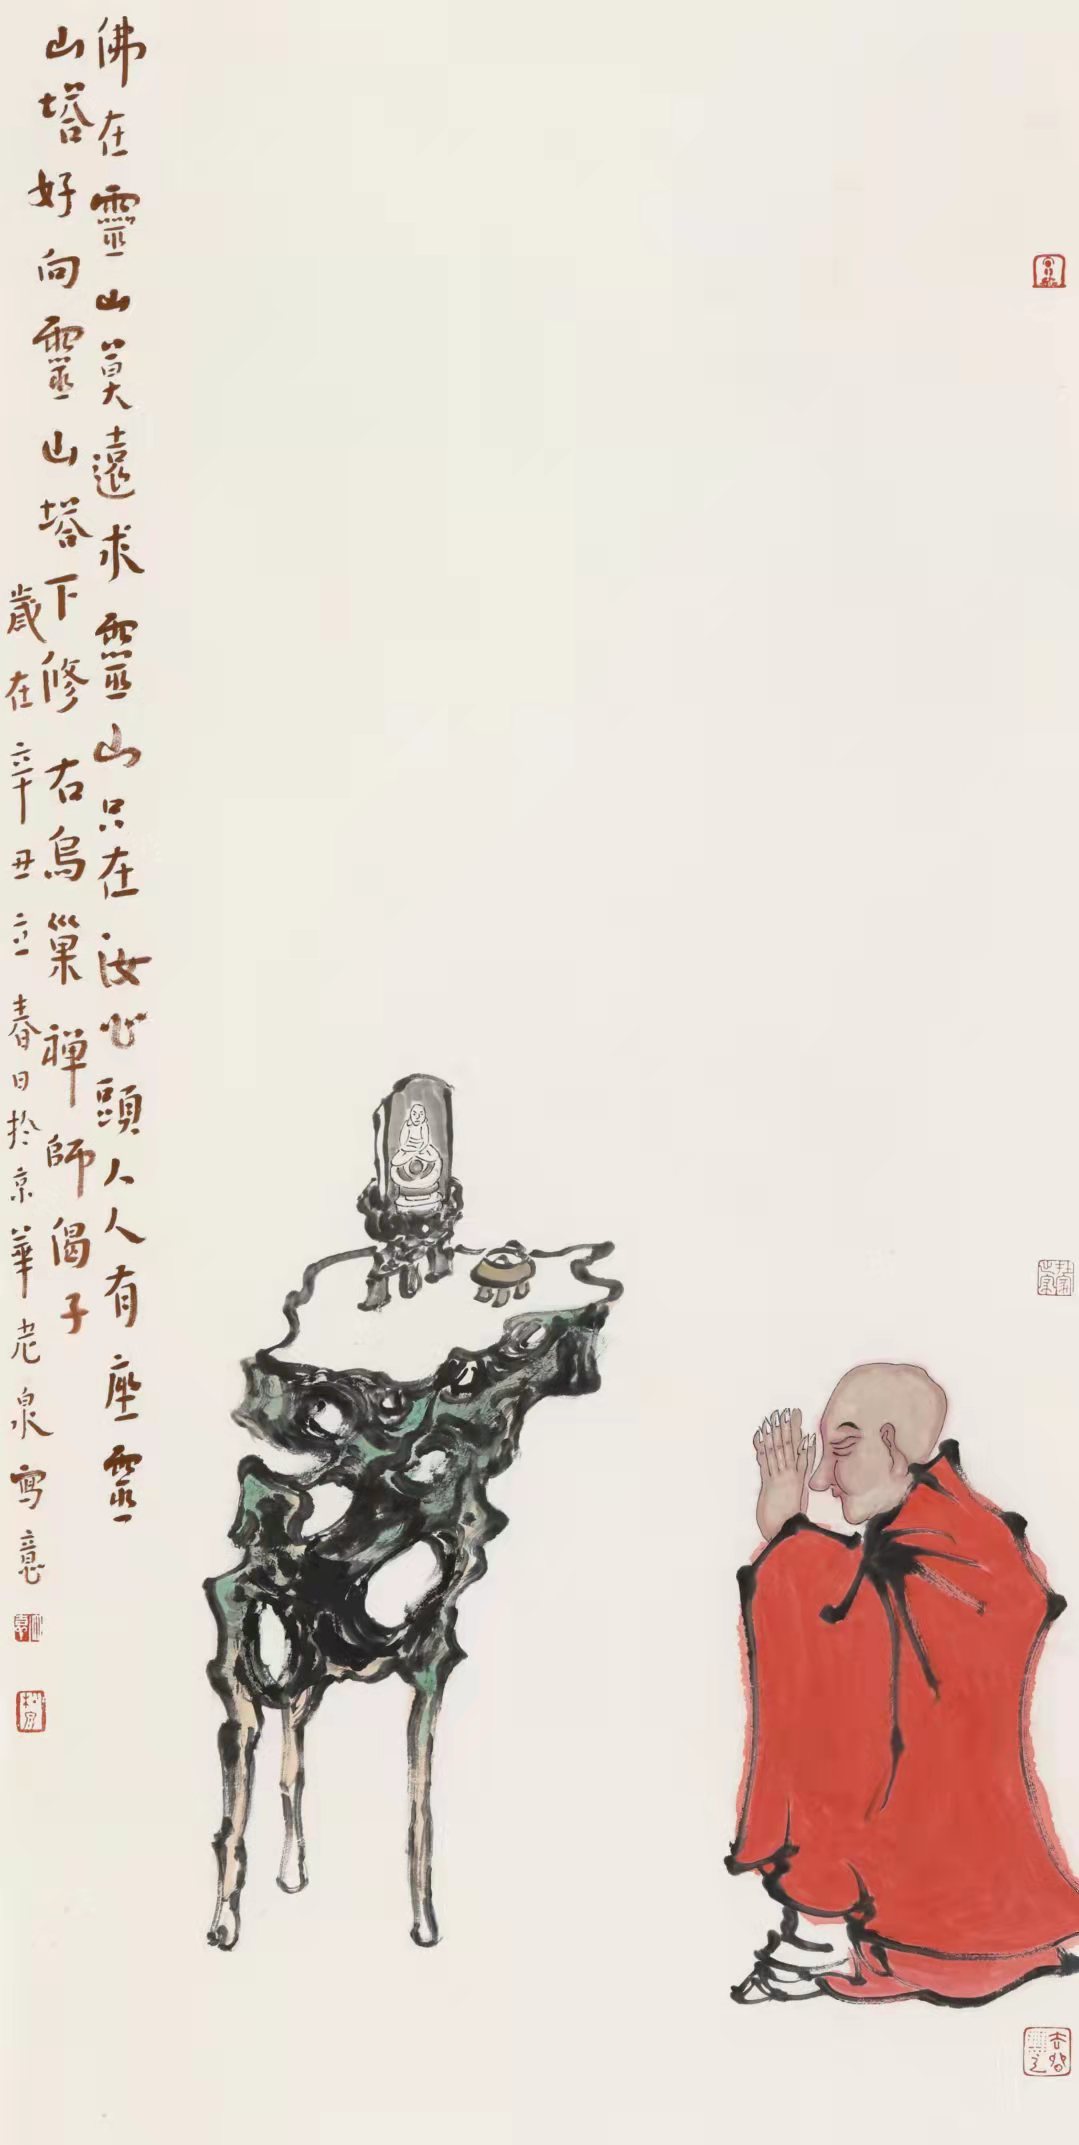 佛在靈山莫遠求靈山只在汝心頭人人有座靈
山塔好向靈山塔下修右鳥巢禪師偈子
歲在辛丑立春日於京華老泉寫意